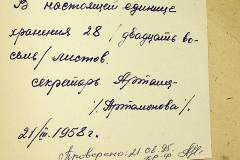 В настоящей единице
хранения 28 /двадцать во-
семь/ листов.
секретарь
/Артамонова/.
21/III.1958г.
Проверено: 21.08.95.